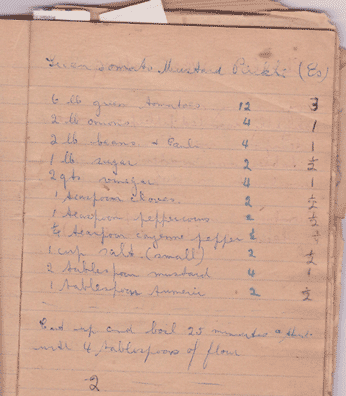 Green Tomato Mustard Pickle (Es)
6 lb green tomatoes 12 3
2 lb onions 4 1
2 lb beans & Caul 4 1
1 lb sugar 2 ½
2 qts vinegar 4 1
1 teaspoon cloves 2 ½
1 teaspoon peppercorns 2 ½
½ teaspoon cayenne pepper ¼
1 cup salt (small) 2 ½
2 tablespoon mustard 4 1
1 tablespoon tumeric 2 ½
Cut up and boil 25 minutes &
with 4 tablespoons of flour
2